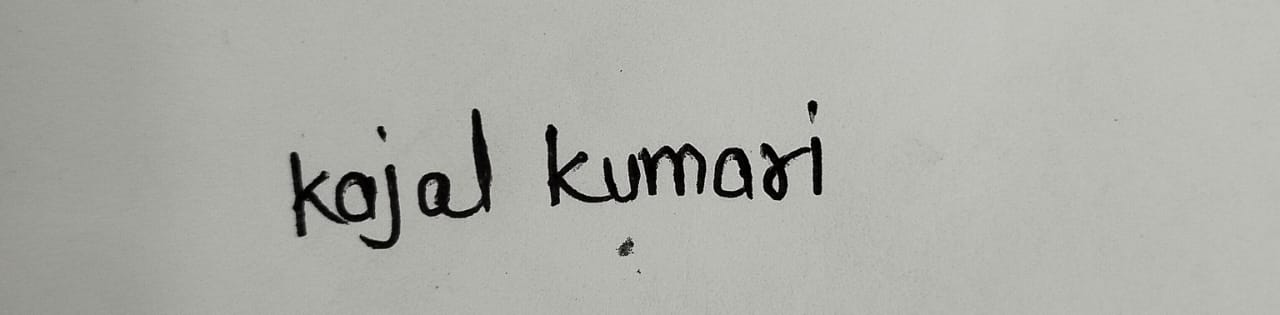 kajal kumari